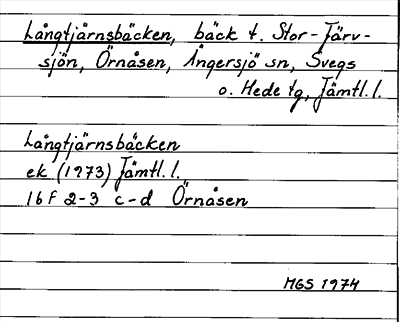 Långtjärnsbäcken, bäck t. Stor-Järv-
sjön, Örnåsen, Ångersjö sn, Svegs
o. Hede tg, Jämtl. l.
Långtjärnsbäcken
ek (1973) Jämtl. l.
16 F 2-3 c-d Örnåsen
MGS 1974